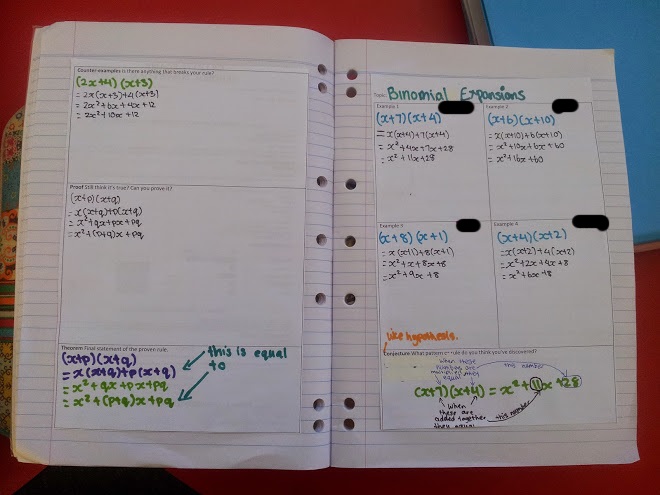 Counter-examples Is there anything that breaks your rule?
(2x+4)(x+3)
= 2x(x+3)+4(x+3)
= 2x²+6x+4x+12
= 2x²+10x+12
Proof Still think it's true? Can you prove it?
(x+p)(x+q)
= x(x+q)+p(x+q)
= x²+qx+px+pq
= x²+(p+q)x+pq
Theorem Final statement of the proven rule.
(x+p)(x+q)
= x(x+q)+p(x+q)
= x²+qx+px+pq
= x²+(p+q)x+pq
this is equal
to
Topic: Binomial Expansions
Example 1
(x+7)(x+4)
= x(x+4)+7(x+4)
= x²+4x+7x+28
= x²+11x+28
Example 2
(x+6)(x+10)
= x(x+10)+6(x+10)
= x²+10x+6x+60
= x²+16x+60
Example 3
(x+8)(x+1)
= x(x+1)+8(x+1)
= x²+x+8x+8
= x²+9x+8
Example 4
(x+4)(x+2)
= x(x+2)+4(x+2)
= x²+2x+4x+8
= x²+6x+8
like hypothesis.
Conjecture What pattern or rule do you think you've discovered?
when these
numbers are
multiplied they
equal
this number
(x+7)(x+4) = x²+11x+28
when
these are
added together
they equal
this number